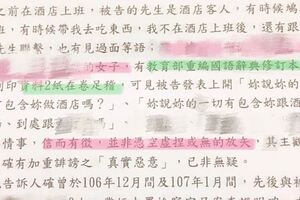 之前在酒店上班，被告的先生是酒店客人，有時候
班，有時候帶我去吃東西，我不在酒店上班後，還有跟
先生聯繫，也有見過面等語；
的女子，有教育部重編國語辭典修訂本
列印資料2紙在卷足稽，可見被告發表上開「妳說妳的
包含妳做酒店嗎？」、「妳說妳的一切有包含妳
、到處跟
情事，信而有徵，並非憑空虛捏或無的放矢，其主觀
確有加重誹謗之「真實惡意」，已非無疑。
告訴人確曾於106年12月間及107年1月間，先後與被